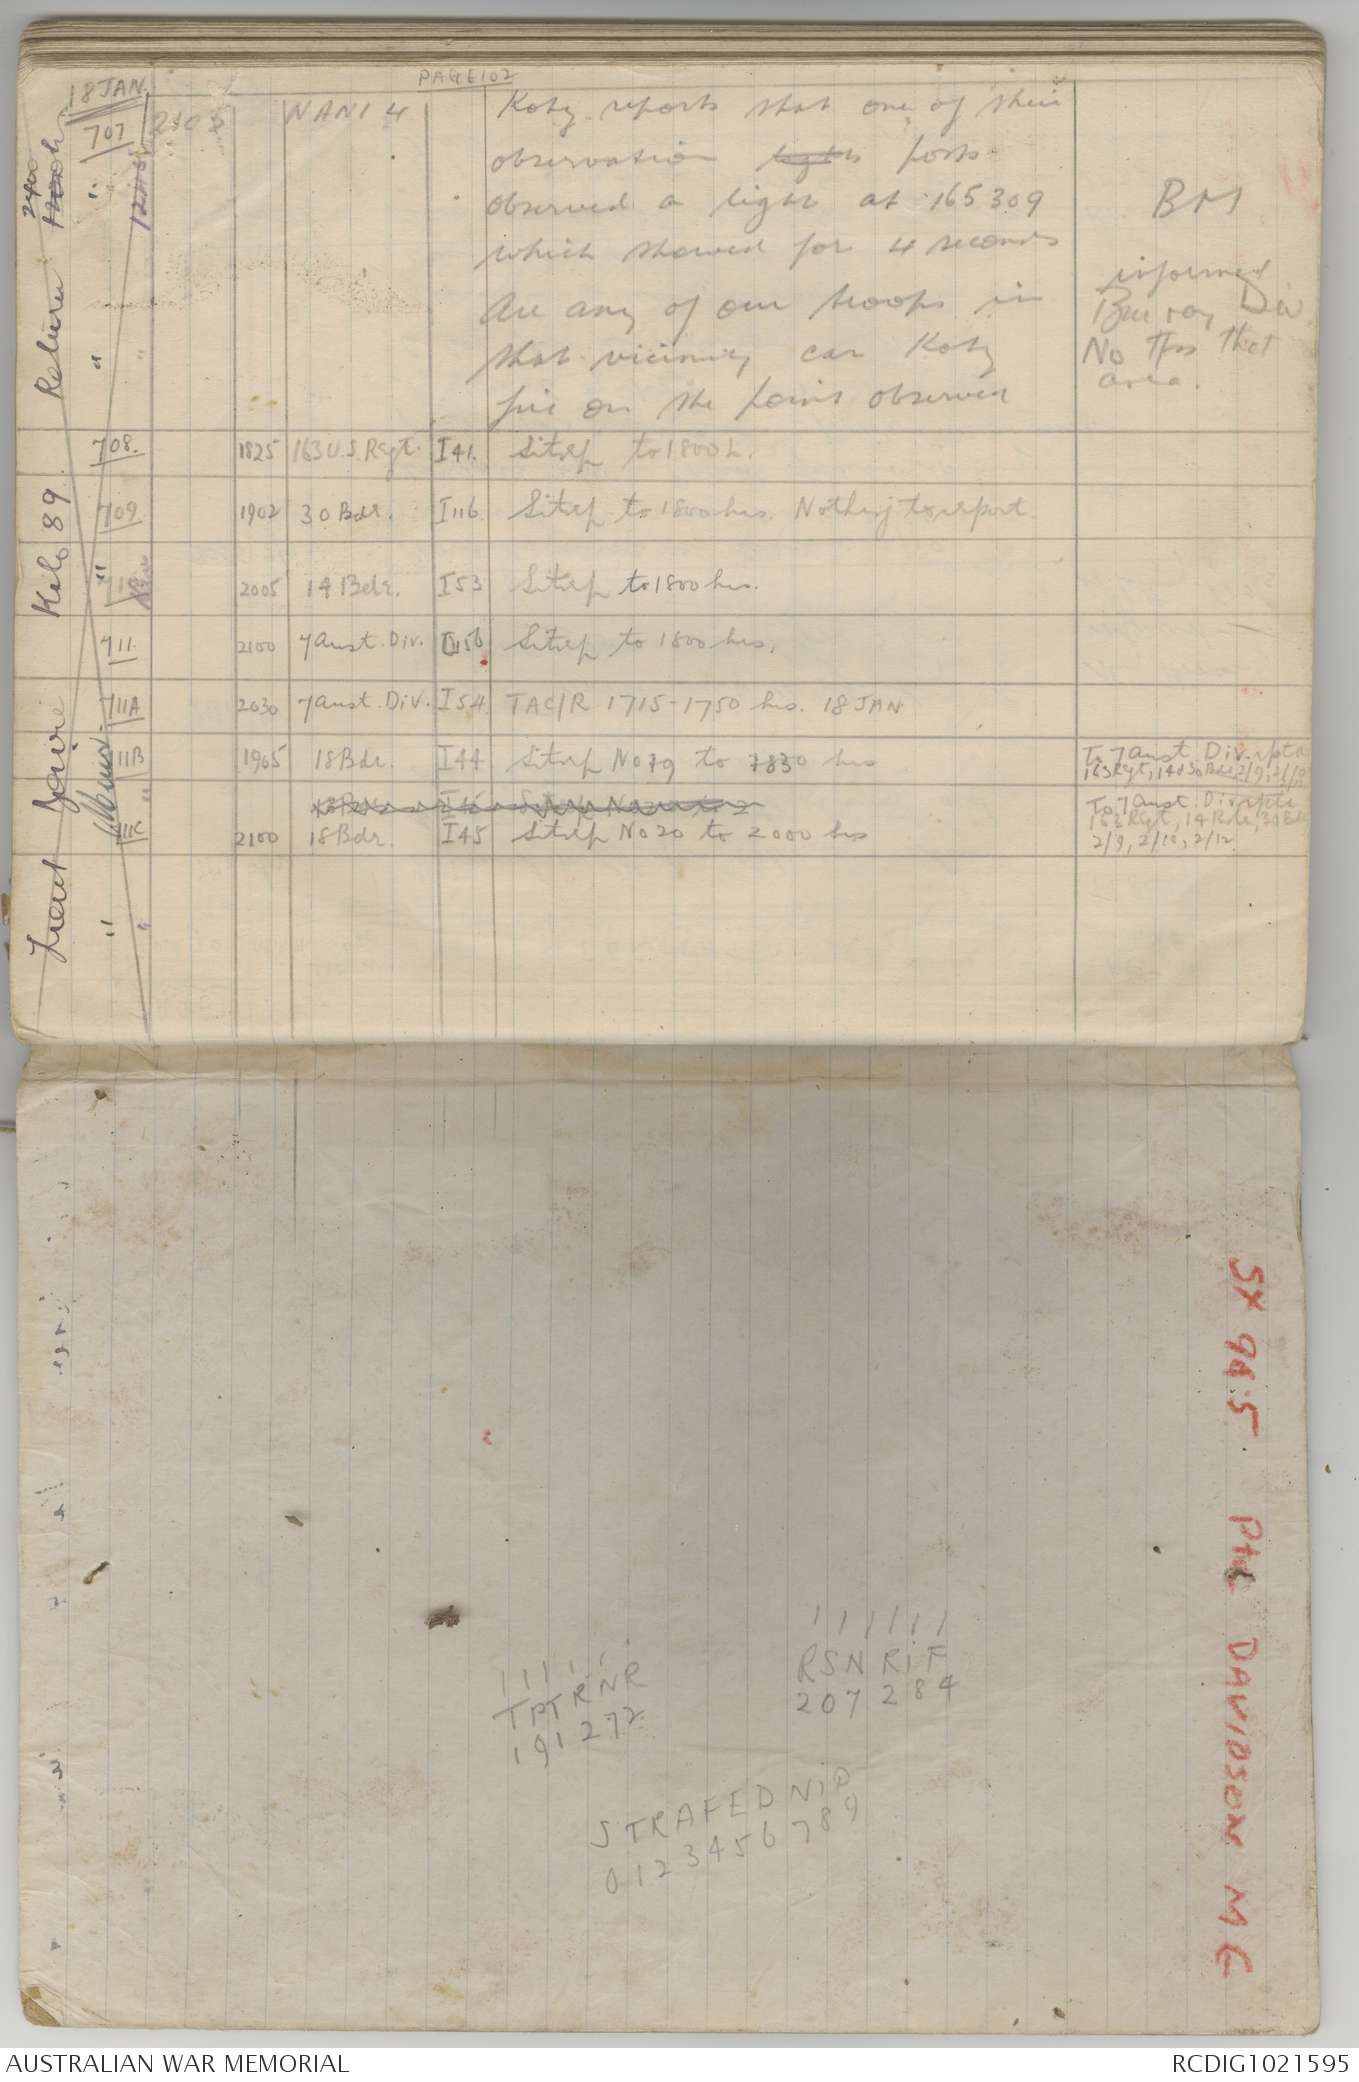 PAGE 102
18 JAN.
707 2105 NANI 4 Koby reports that one of their
observation posts
observed a light at 165309
which showed for 4 seconds
Are any of our troops in
that vicinity can Koby
fire on the point observed
BM
informed
Div
No Tps that
area.
708. 1825 163 U.S. Regt. I41. Sitrep to 1800 h.
709 1902 30 Bde. I116 Sitrep to 1800 hrs. Nothing to report.
710 2005 14 Bde. I53 Sitrep to 1800 hrs.
711. 2100 7 Aust. Div. Sitrep to 1800 hrs.
711A 2030 7 Aust. Div. I54 TAC/R 1715-1750 hrs. 18 JAN
711B 1905 18 Bde. I44 Sitrep No 19 to 1830 hrs To 7 Aust. Div. rptd
163 Regt, 14 & 30 Bde, 2/9, 2/10
711C 2100 18 Bde. I45 Sitrep No 20 to 2000 hrs To 7 Aust. Div rptd
163 Regt, 14 Bde, 30 Bde
2/9, 2/10, 2/12.
2400
Lieut Kelo 89
SX 9 5 Pte DAVIDSON M E
RSN RiF
207 284
TPTRNR
191272
STRAFED NiP
0123456789
AUSTRALIAN WAR MEMORIAL
RCDIG1021595